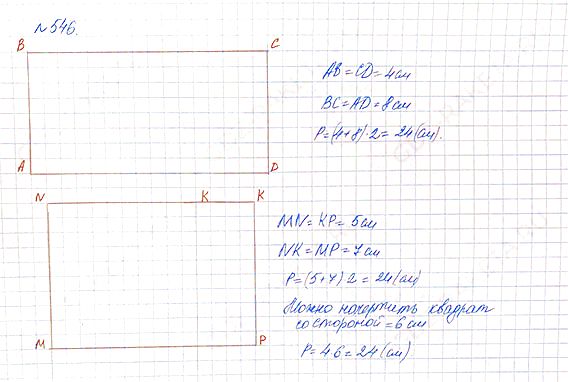 № 546.
B C
AB = CD = 4 см
BC = AD = 8 см
P = (4+8)·2 = 24 (см).
A D
N K K
MN = KP = 5 см
NK = MP = 7 см
P = (5+7)·2 = 24 (см)
Можно начертить квадрат
со стороной = 6 см
M P
P = 4·6 = 24 (см)